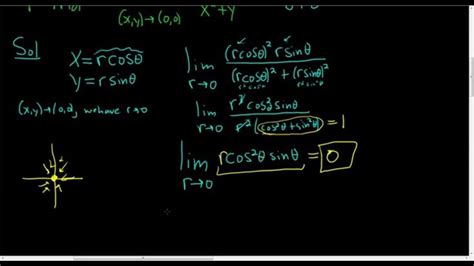 (x,y)→(0,0) x²+y
Sol
x = rcosθ
y = rsinθ
(x,y)→(0,0), we have r→0
lim r→0 (rcosθ)² rsinθ / (rcosθ)² + (rsinθ)²
r²cos²θ r²sin²θ
lim r→0 r³cos²θ sinθ / r²(cos²θ + sin²θ) = 1
lim r→0 rcos²θ sinθ = 0